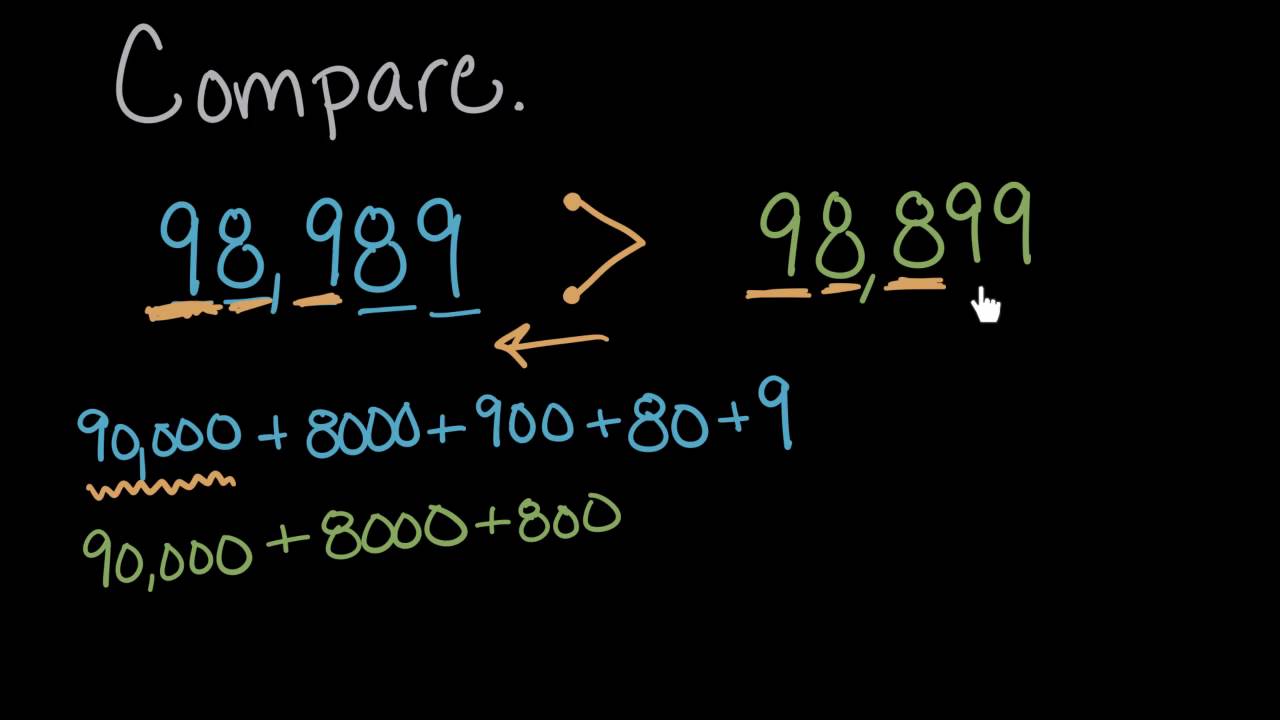 Compare.
98,989 > 98,899
90,000 + 8000 + 900 + 80 + 9
90,000 + 8000 + 800